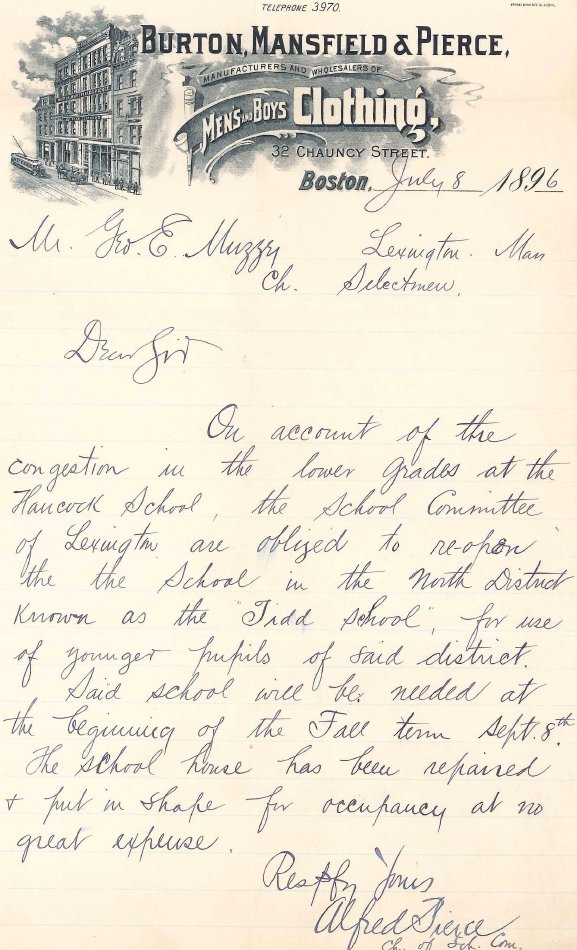 TELEPHONE 3970.
BURTON, MANSFIELD & PIERCE,
MANUFACTURERS AND WHOLESALERS OF
MEN'S AND BOYS Clothing,
32 CHAUNCY STREET.
Boston, July 8 1896
Mr. Geo. E. Muzzey Lexington. Mass
Ch. Selectmen.
Dear Sir
On account of the
congestion in the lower grades at the
Hancock School, the School Committee
of Lexington are obliged to re-open
the the School in the North District
known as the "Tidd School", for use
of younger pupils of said district.
Said school will be needed at
the beginning of the Fall term Sept. 8th.
The school house has been repaired
& put in shape for occupancy at no
great expense.
Respfy Yours
Alfred Pierce
Ch. of Sch. Com.